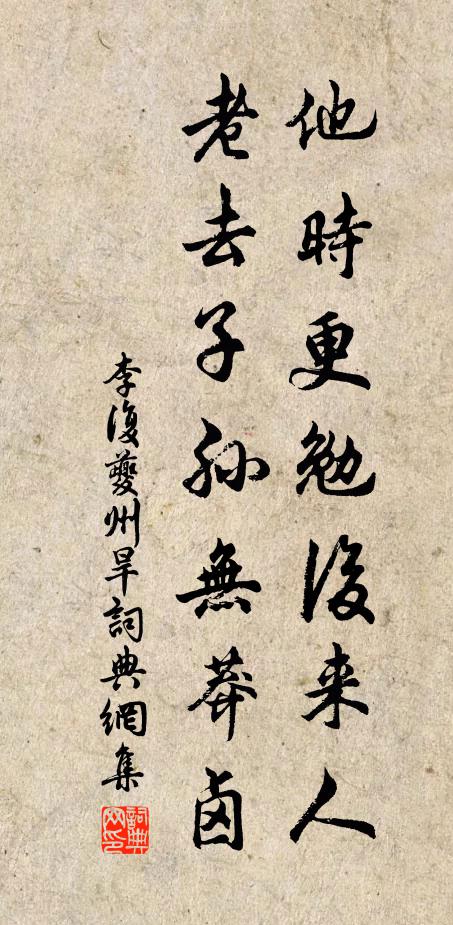 他時更勉後来人
老去子孙無莽卤
李復夔州旱詞典網集
詞典网印